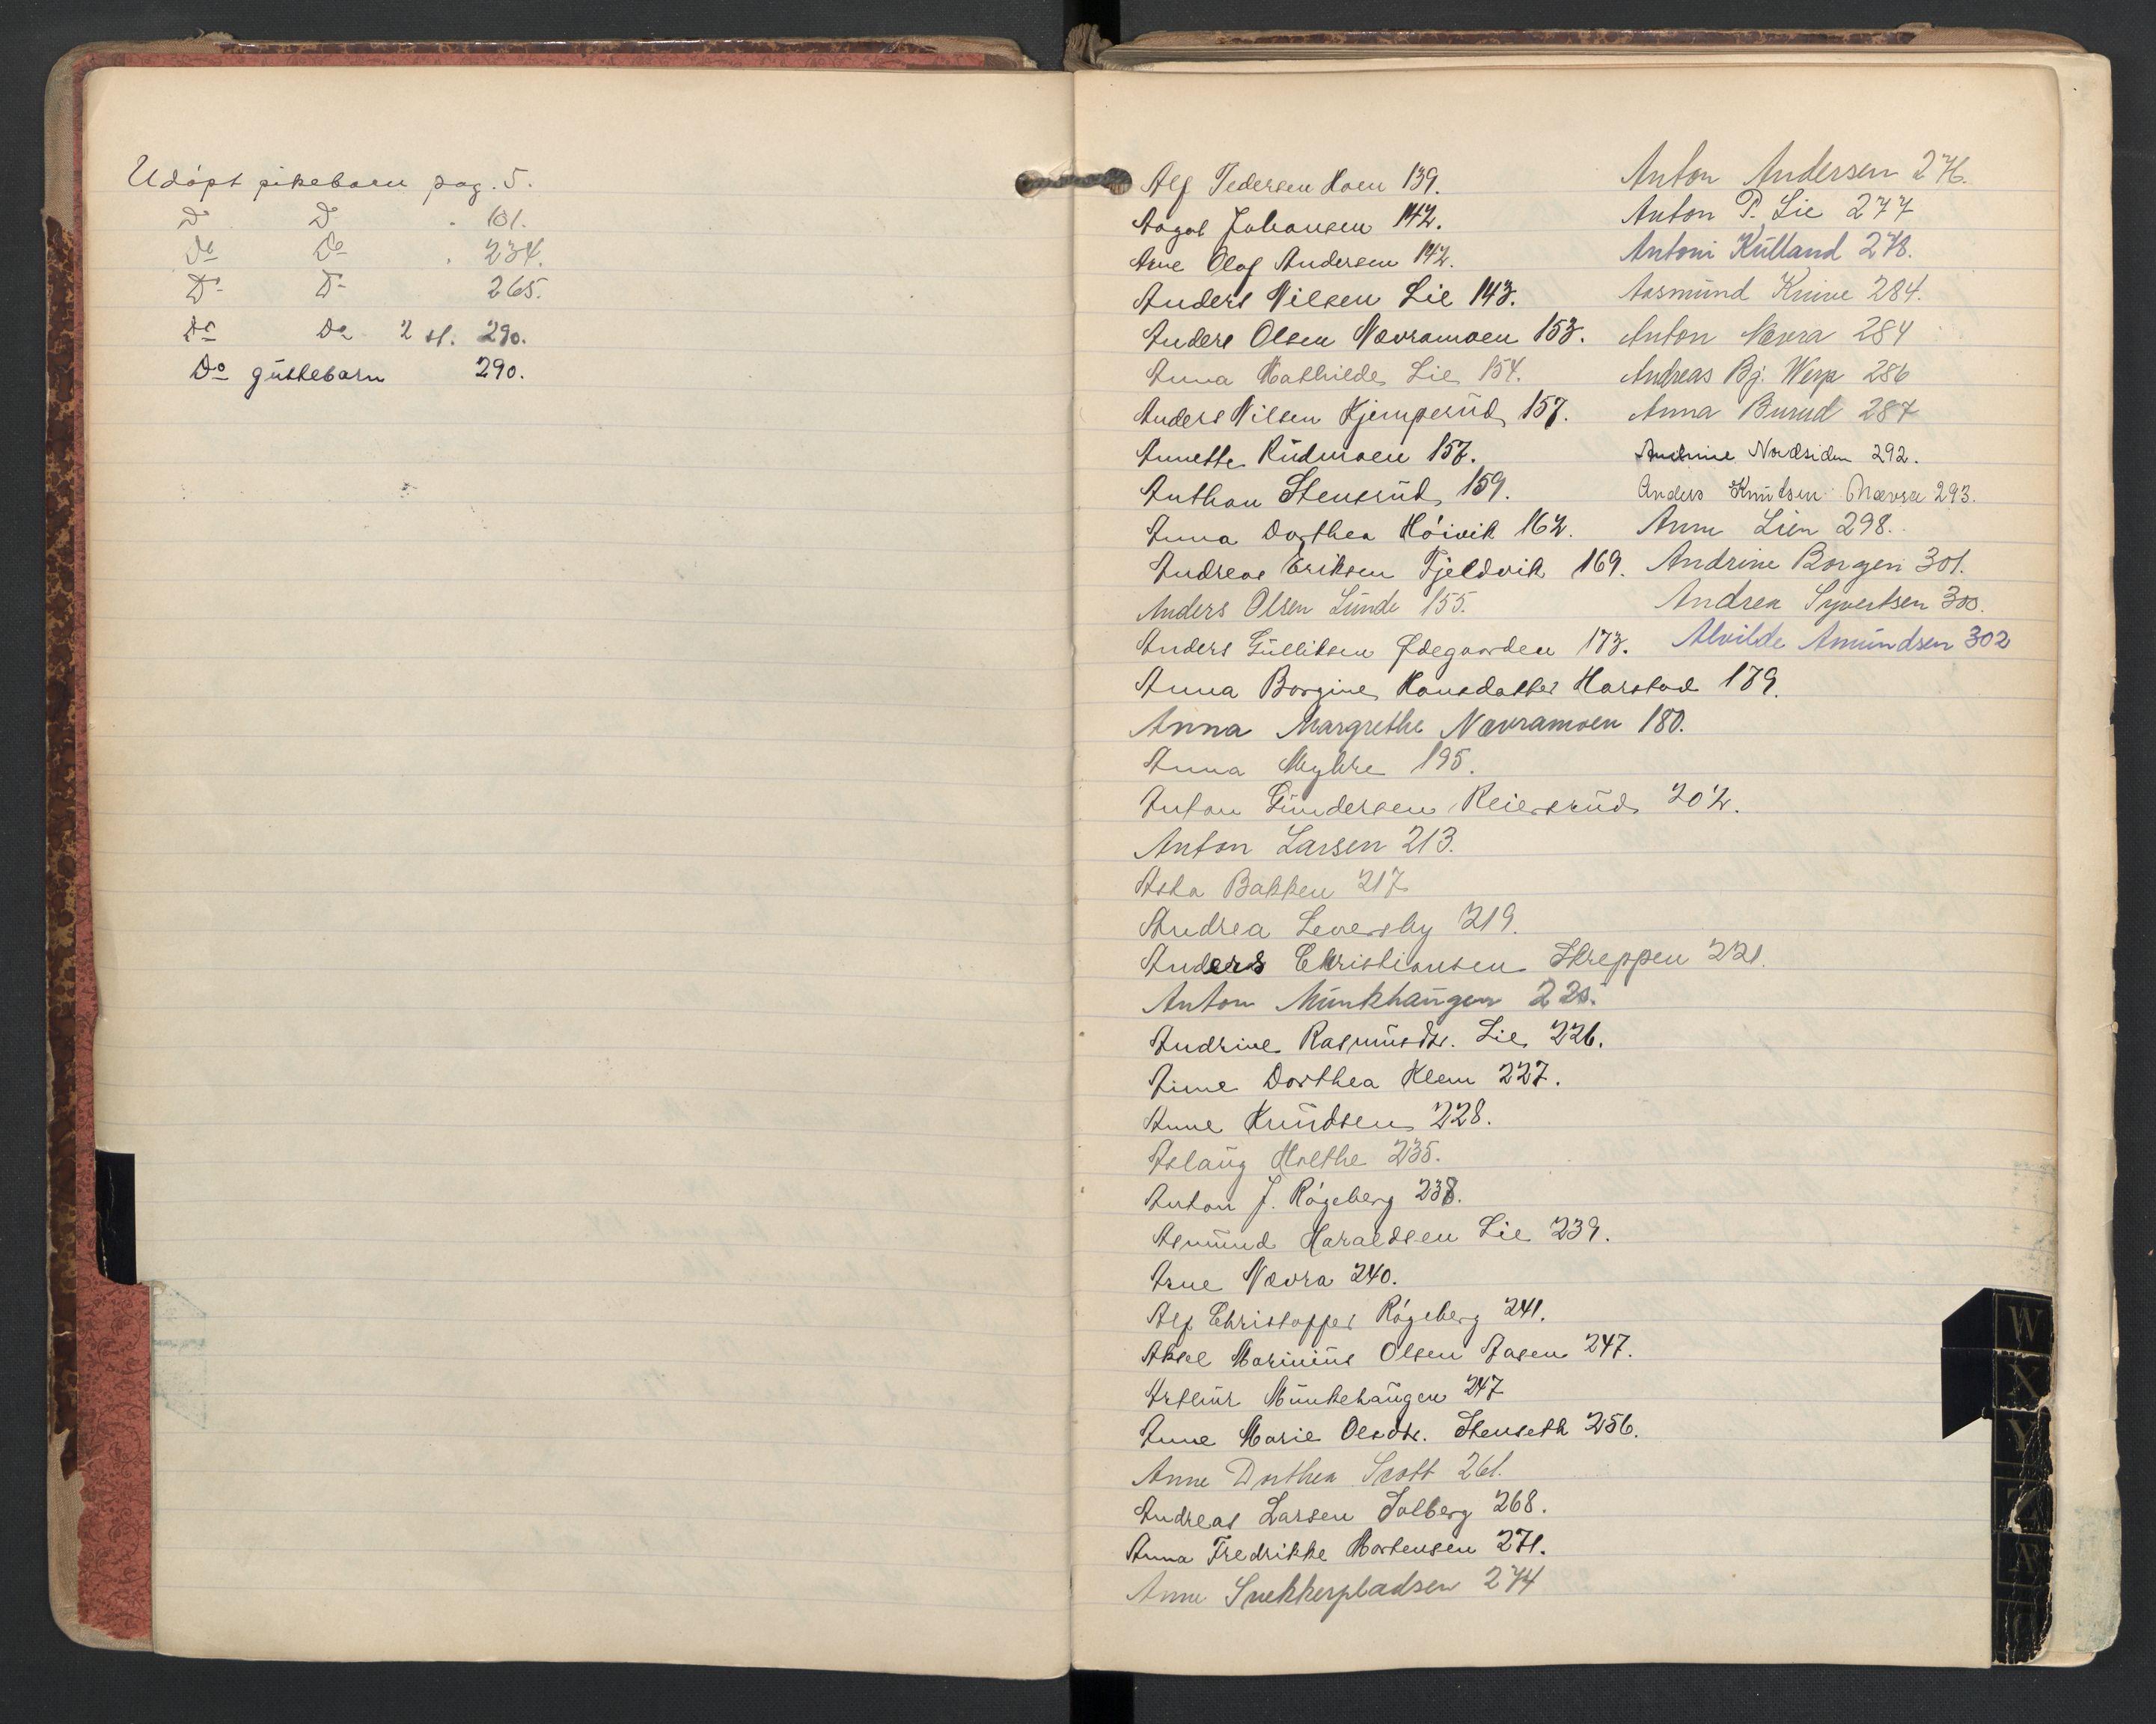 Udøpt pikebarn pag. 5.
D. D. - 101.
Do Do . 234.
D- D- 265.
Do Do 2 st. 290.
Do guttebarn 290.
Alf Pedersen Hoen 139.
Aagot Johansen 142.
Arne Olaf Andersen 142.
Anders Nilsen Lie 143.
Anders Olsen Nævramoen 153.
Anna Mathilde Lie 154.
Anders Nilsen Kjemperud 157.
Annette Rudmoen 157.
Anthon Stensrud 159.
Anna Dorthea Høivik 162.
Andreas Eriksen Fjeldvik 169.
Anders Olsen Lunde 155.
Anders Gulliksen Ødegaarden 173.
Anna Borgine Hansdatter Harstad 179.
Anna Margrethe Nævramoen 180.
Anna Myhre 195.
Anton Gundersen Reiersrud 202.
Anton Larsen 213.
Asta Bakken 217
Andrea Leversby 219.
Anders Christiansen Skreppen 221.
Anton Munkhaugen 225.
Andrine Rasmusdtr. Lie 226.
Anne Dorthea Klem 227.
Anne Knudsen 228.
Aslaug Holthe 235.
Anton J. Røgeberg 238.
Asmund Haraldsen Lie 239.
Arne Nævra 240.
Alf Christoffer Røgeberg 241.
Aksel Marinius Olsen Aasen 247.
Arthur Munkehaugen 247
Anne Marie Olsdtr. Stenseth 256.
Anne Dorthea Scott 261.
Andreas Larsen Solberg 268.
Anna Fredrikke Mortensen 271.
Anne Snekkerpladsen 274
Anton Andersen 276.
Anton P. Lie 277
Antoni Kulland 278.
Aasmund Knive 284.
Anton Nævra 284
Andreas Bj. Werp 286
Anna Burud 287
Andrine Nordsiden 292.
Anders Knutsen Nævra 293.
Anne Lien 298.
Andrine Borgen 301.
Andrea Syvertsen 300.
Alvilde Amundsen 302
W
X
Y
Z